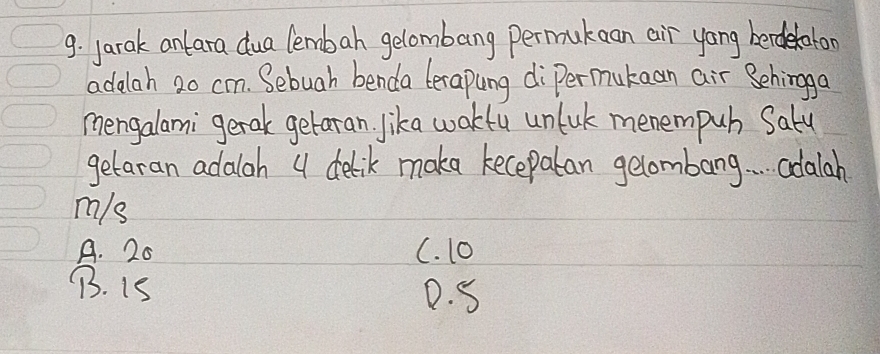 9. Jarak antara dua lembah gelombang permukaan air yang berdekatan
adalah 20 cm. Sebuah benda terapung di permukaan air Sehingga
mengalami gerak getaran. Jika waktu untuk menempuh Satu
getaran adalah 4 detik maka kecepatan gelombang.... adalah
m/s
A. 20 C. 10
B. 15 D. 5